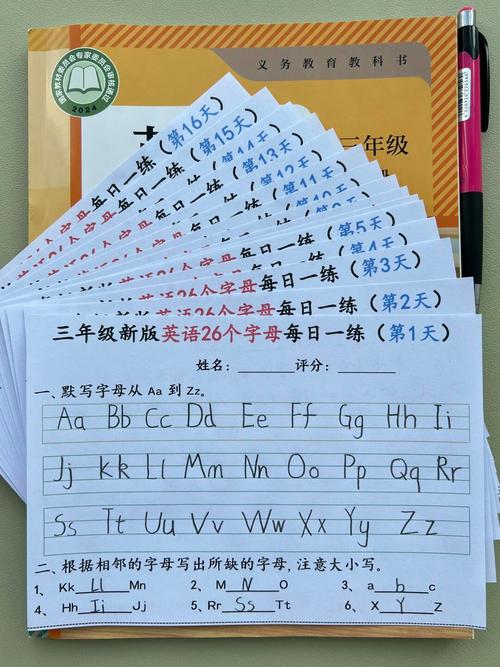 国家教材委员会专家委员会审核通过
2024
义务教育教科书
三年级
英语26个字母每日一练（第16天）
每日一练（第15天）
第13天
第12天
第11天
英语26个字母每日一练（第5天）
第4天
英语26个字母每日一练（第3天）
英语26个字母每日一练（第2天）
三年级新版英语26个字母每日一练（第1天）
姓名：______评分：______
一、默写字母从 Aa 到 Zz。
Aa Bb Cc Dd Ee Ff Gg Hh Ii
Jj Kk Ll Mm Nn Oo Pp Qq Rr
Ss Tt Uu Vv Ww Xx Yy Zz
二、根据相邻的字母写出所缺的字母，注意大小写。
1、 Kk Ll Mn 2、 M N O 3、 a b c
4、 Hh Ii Jj 5、 Rr Ss Tt 6、 X Y Z